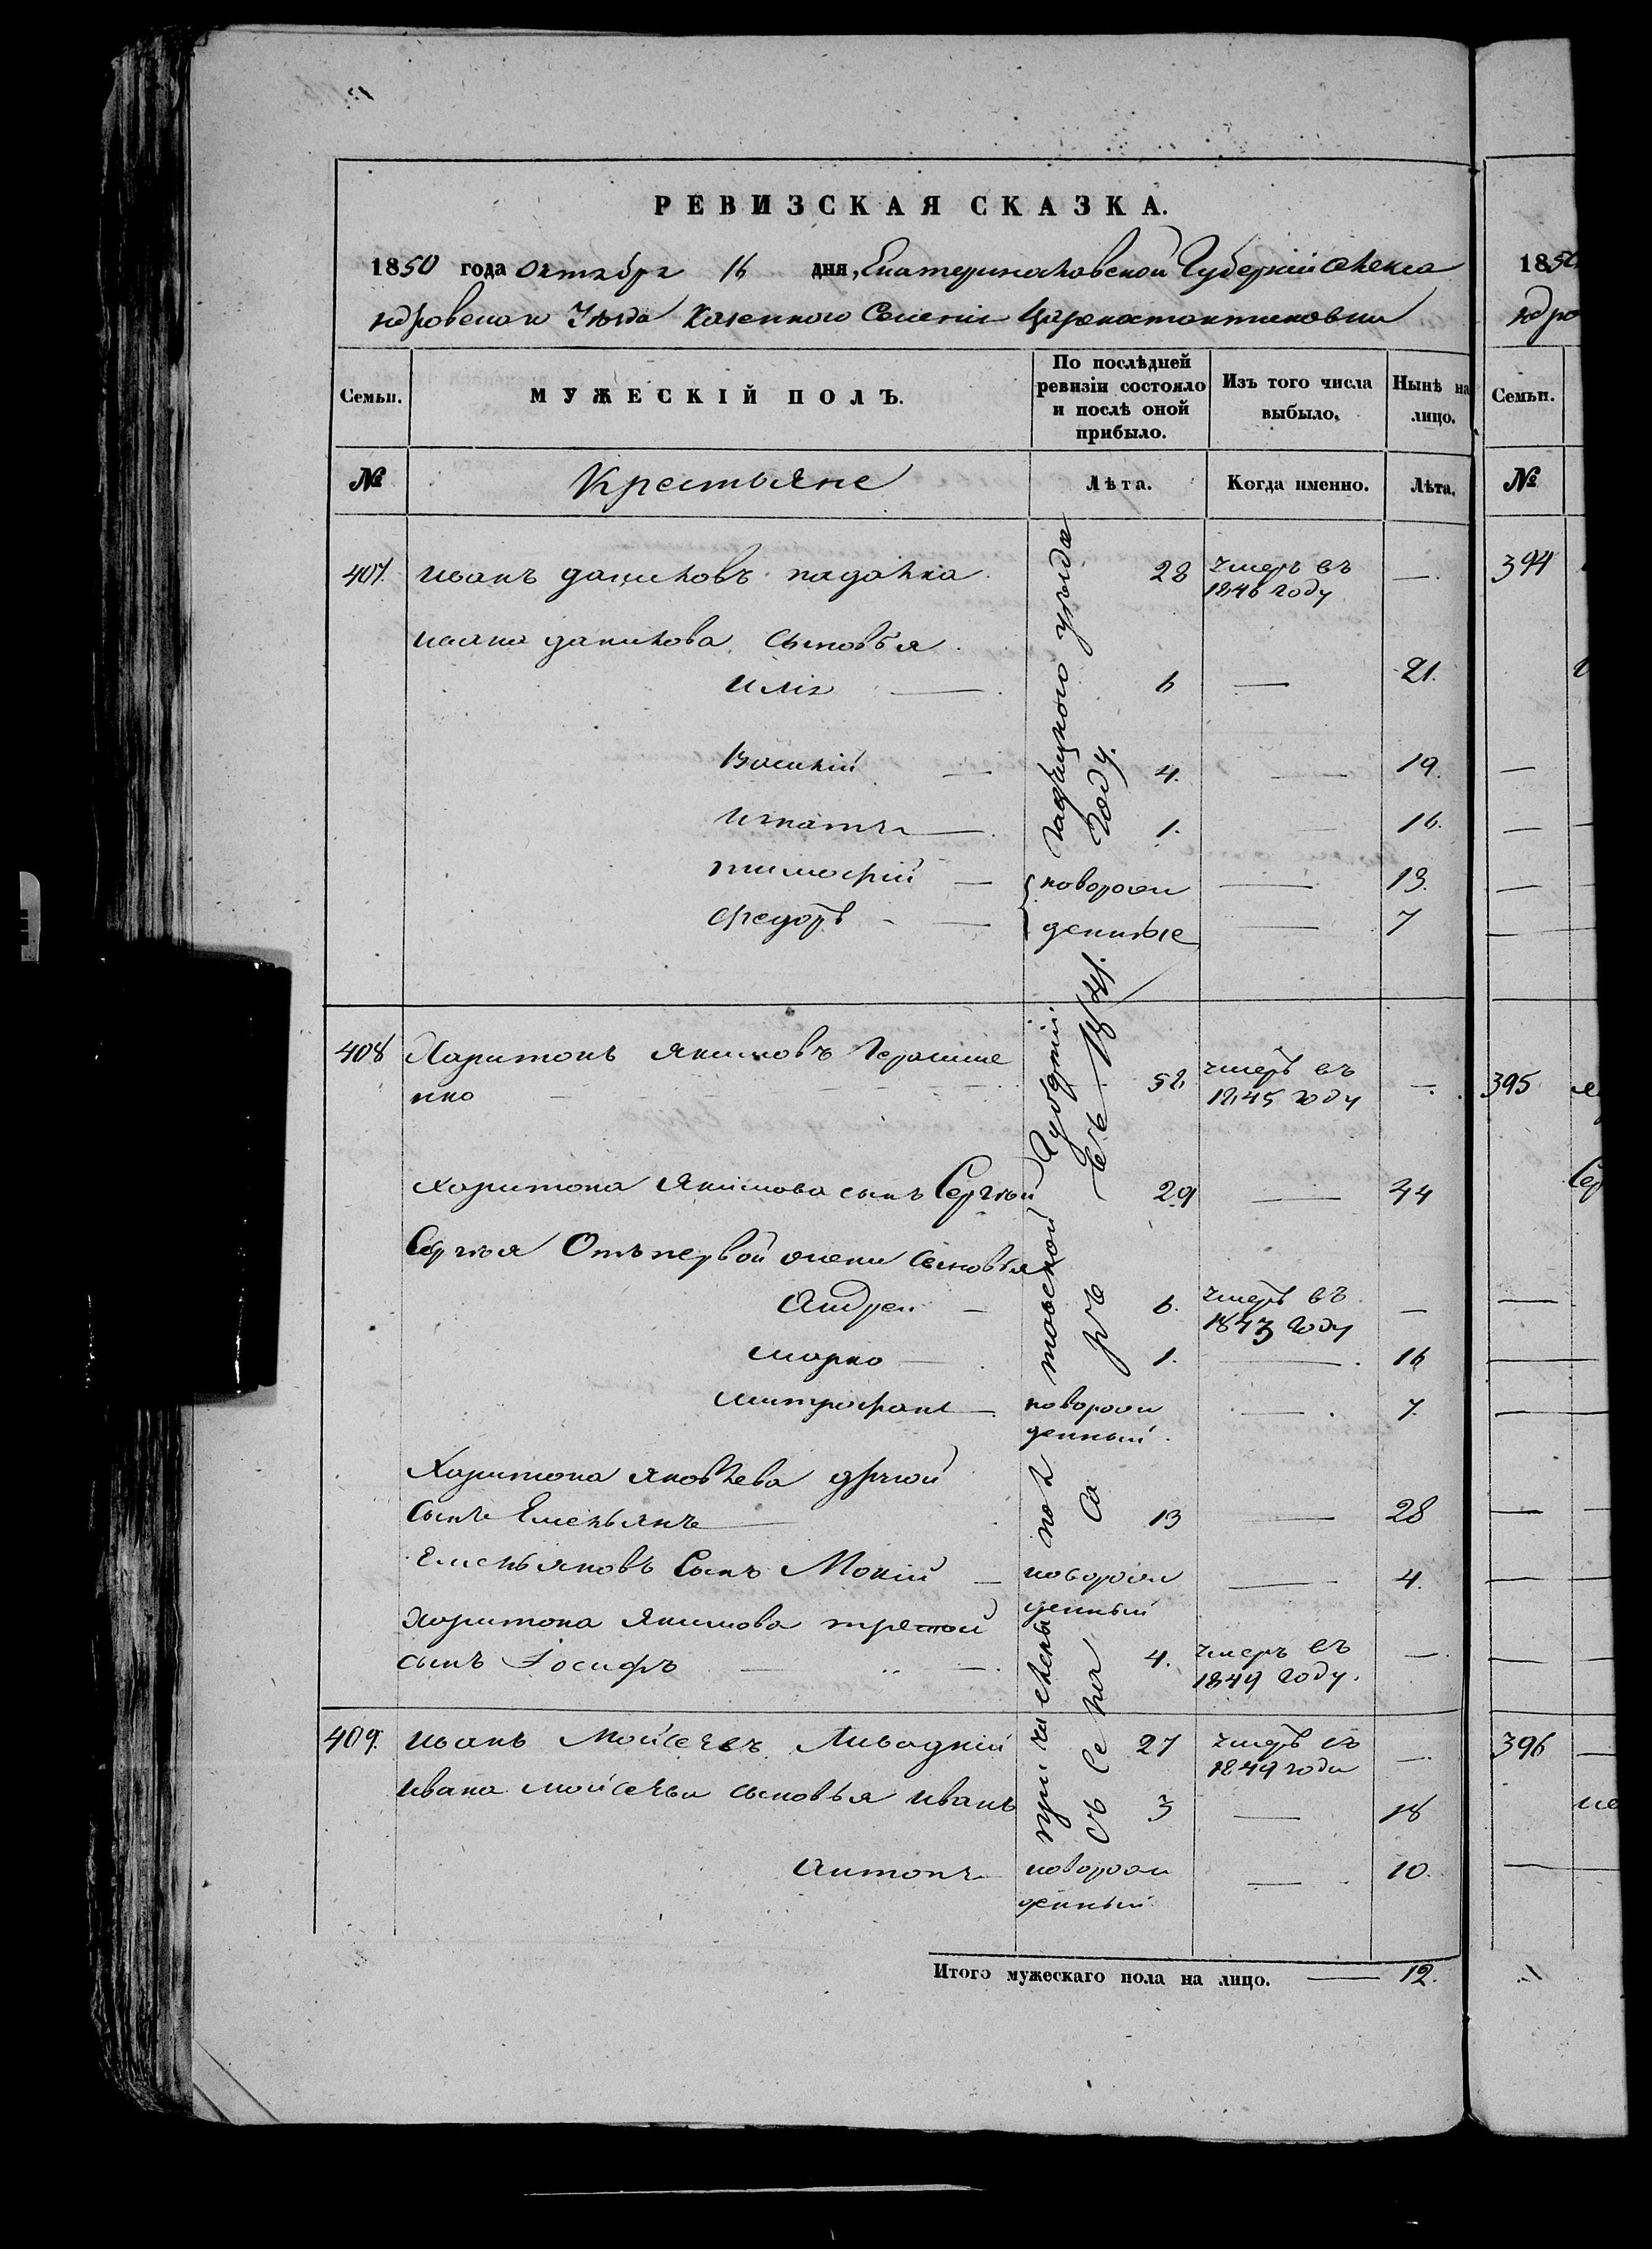 РЕВИЗСКАЯ СКАЗКА.
1850 года Октября 16 дня, Екатеринославской Губерніи Алекса
ндровскаго Уѣзда Казенного Селенія Цареконстантиновки
Семьи.
МУЖЕСКІЙ ПОЛЪ.
По послѣдней ревизіи состояло и послѣ оной прибыло.
Изъ того числа выбыло.
Нынѣ на лицо.
№
Крестьяне
Лѣта.
Когда именно.
Лѣта.
407. Иванъ Даниловъ 28 умеръ въ 1846 году —
Ивана Данилова сыновья
Илія — 6 — 21.
Василій — 4. — 19.
Игнатъ — 1. — 16.
Тимофій — новорож — 13.
Федоръ — денные — 7
408 Харитонъ Якимовъ Гераще
нко 52 умеръ въ 1845 году —
Харитона Якимова сынъ Сергѣй 29 — 44
Сергѣя Отъ первой жены сыновья
Андрей — 6. умеръ въ 1843 году —
Марко — 1. — 16
Митрофанъ — новорож денный — 7.
Харитона Яковлева другой
сынъ Емельянъ 13 — 28
Емельяновъ Сынъ Мокій — новорож денный — 4.
Харитона Якимова третой
сынъ Іосифъ — 4. умеръ въ 1849 году. —
409. Иванъ Мойсеевъ Ливадній 27 умеръ въ 1849 году —
Ивана Мойсеева сыновья Иванъ 3 — 18
Антонъ новорож денный — 10.
причислены Полтавской Губерніи Гадяцкого уезда
съ Села Са ръ въ 1841. году.
Итого мужескаго пола на лицо. — 12.
1850
ндро
Семьи.
№
394
395
Сер
396